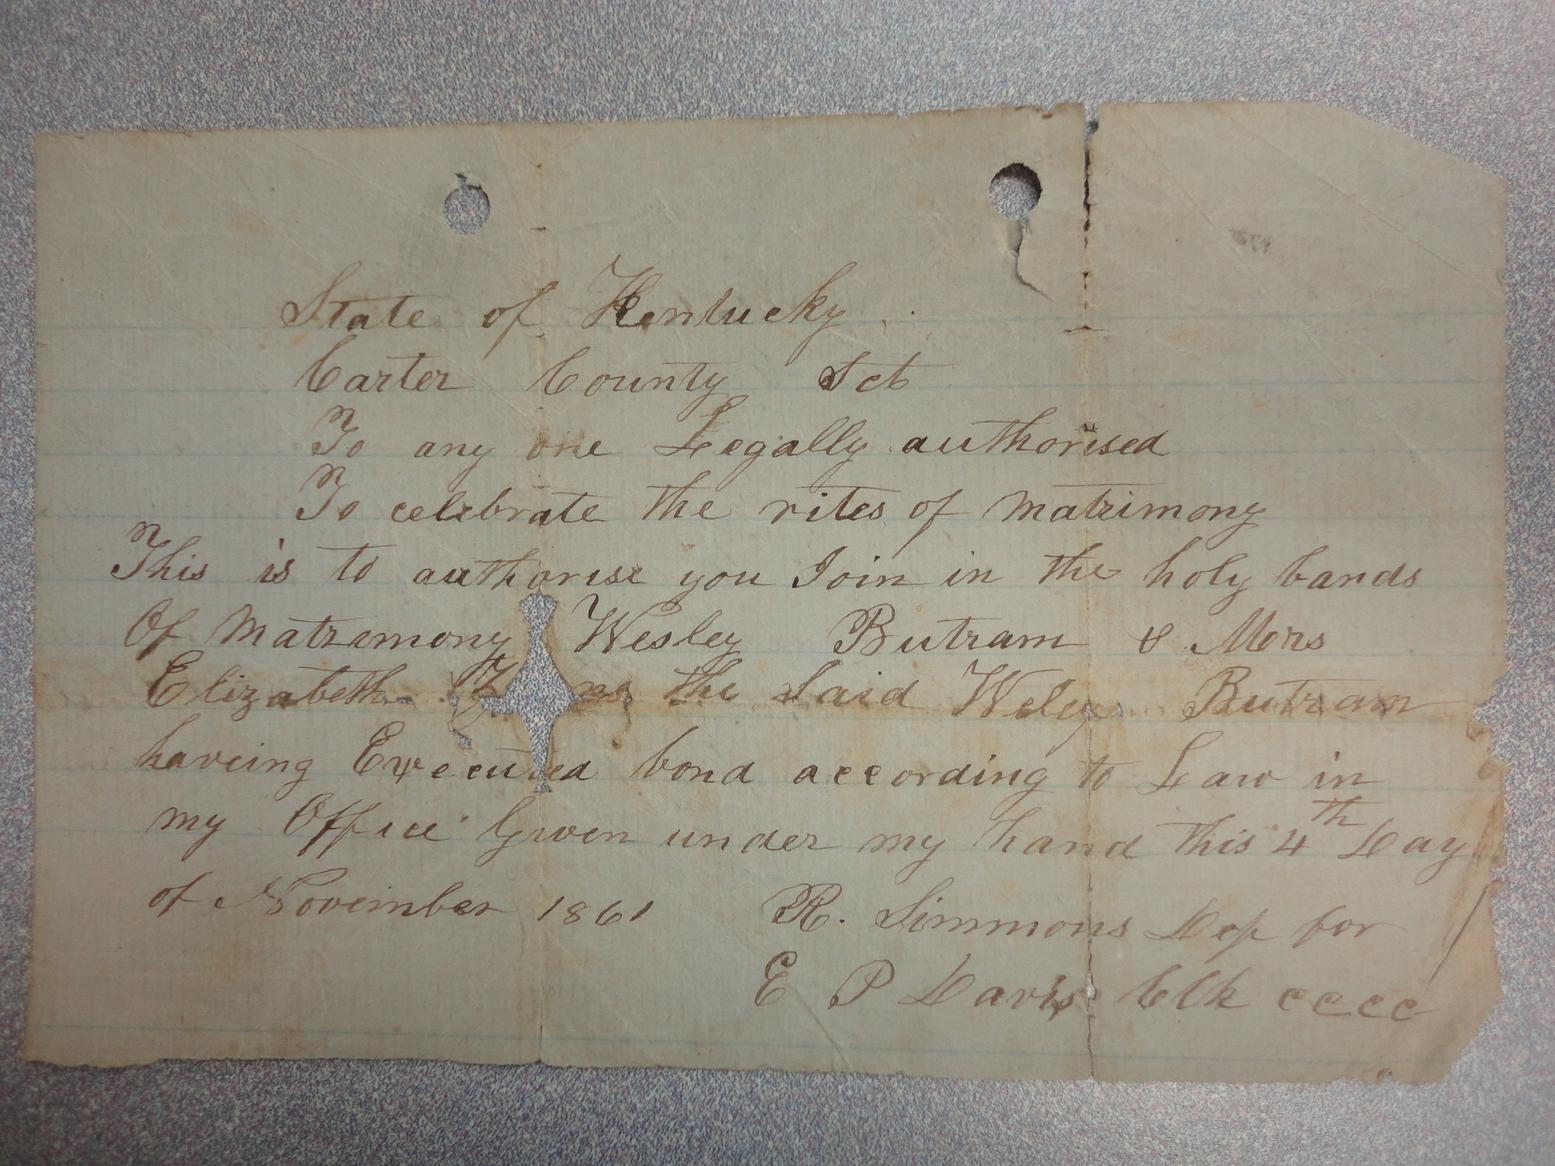 State of Kentucky
Carter County Sct
To any one Legally authorised
To celebrate the rites of matrimony
This is to authorise you Join in the holy bands
Of Matrimony Wesley Butram & Mors
Elizabeth the Said Weley Butram
haveing Executed bond according to Law in
my Office Given under my hand this 4th Day
of November 1861 R. Simmons Dep for
E P Davis Clk cccc